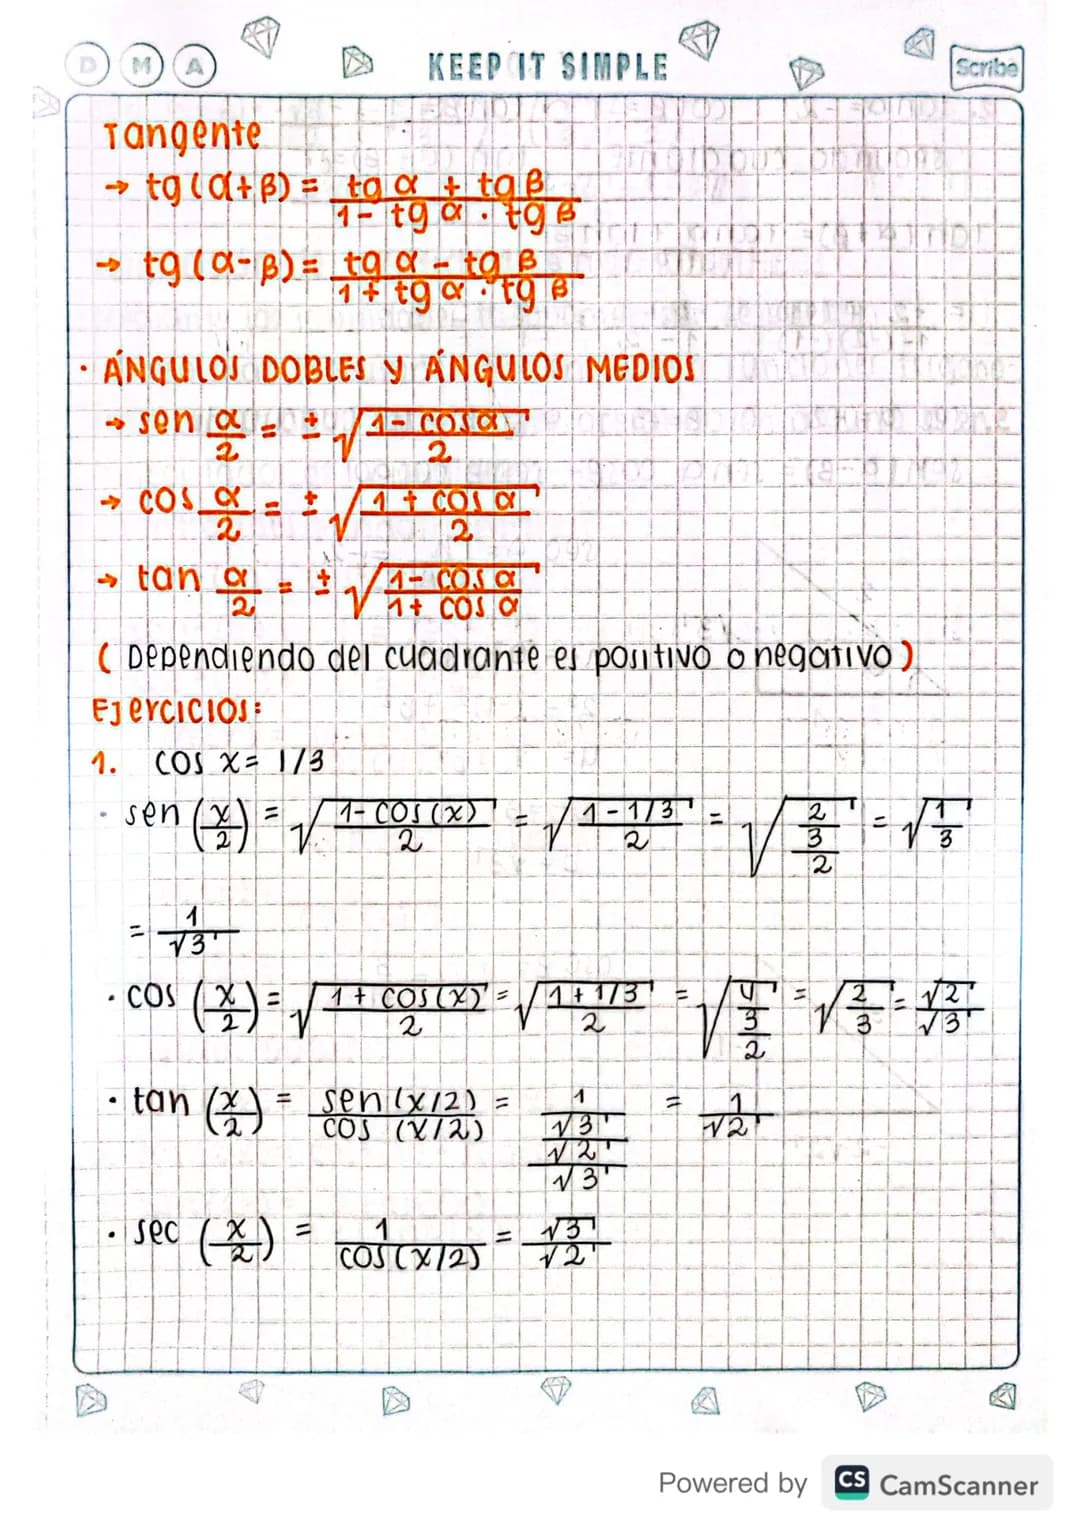 D M A KEEP IT SIMPLE Scribe
Tangente
→ tg (α+β) = tg α + tg β / 1 - tg α . tg β
→ tg (α-β) = tg α - tg β / 1 + tg α . tg β
· ÁNGULOS DOBLES y ÁNGULOS MEDIOS
→ sen α/2 = ± √(1 - cos α / 2)
→ cos α/2 = ± √(1 + cos α / 2)
→ tan α/2 = ± √(1 - cos α / 1 + cos α)
( Dependiendo del cuadrante es positivo o negativo )
Ejercicios:
1. cos x = 1/3
· sen (x/2) = √(1 - cos(x) / 2) = √(1 - 1/3 / 2) = √(2/3 / 2) = √(1/3)
= 1/√3
· cos (x/2) = √(1 + cos(x) / 2) = √(1 + 1/3 / 2) = √(4/3 / 2) = √(2/3) = √2/√3
· tan (x/2) = sen (x/2) / cos (x/2) = 1/√3 / √2/√3 = 1/√2
· sec (x/2) = 1 / cos(x/2) = √3/√2
Powered by CS CamScanner